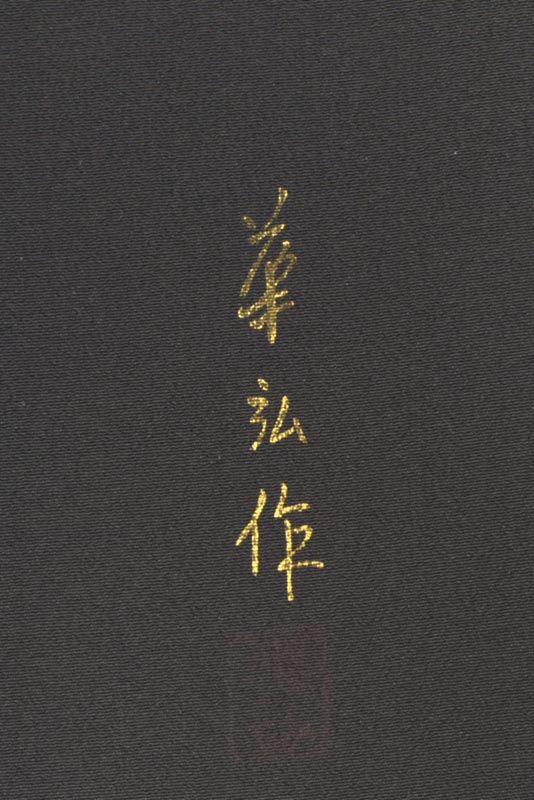 華弘作